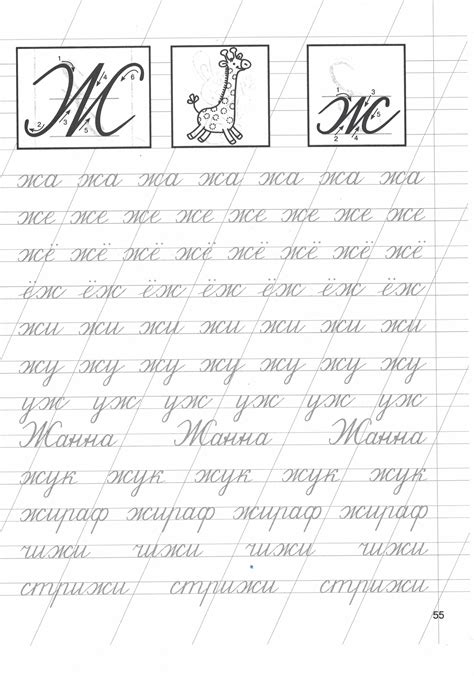 1 4 6 Ж 2 3 5
1 3 ж 2 4 5
жа жа жа жа жа жа жа
же же же же же же же же
жё жё жё жё жё жё жё жё
ёж ёж ёж ёж ёж ёж ёж
жи жи жи жи жи жи жи
жу жу жу жу жу жу жу
уж уж уж уж уж уж
Жанна Жанна Жанна
жук жук жук жук жук
жираф жираф жираф жираф
чижи чижи чижи чижи
стрижи стрижи стрижи
55